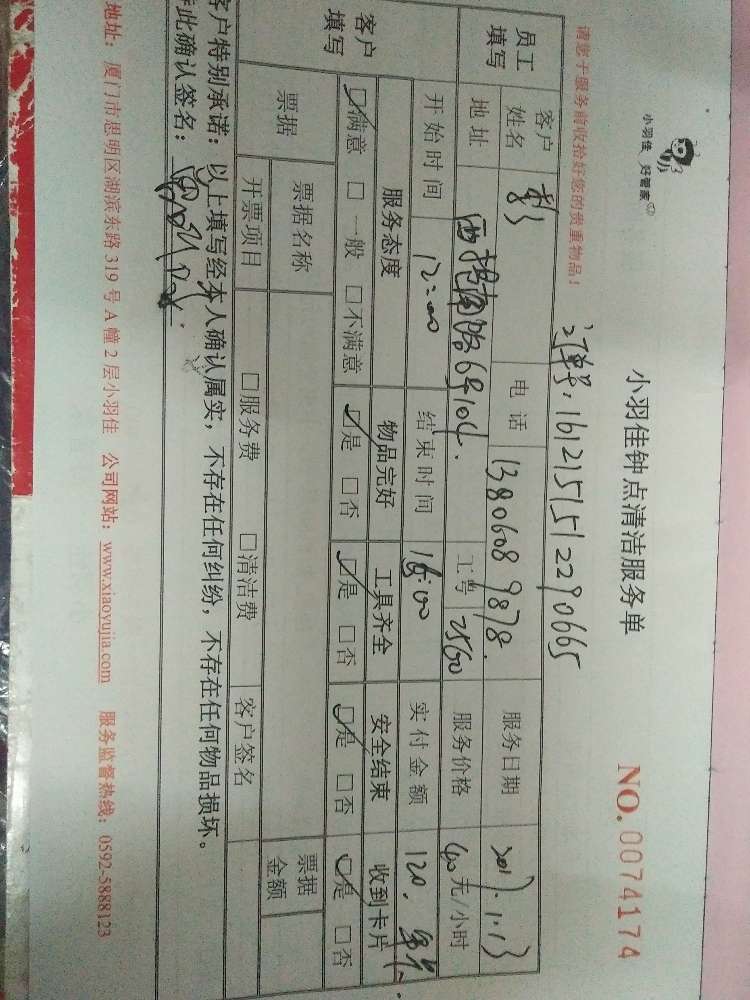 小羽佳 好管家
小羽佳钟点清洁服务单
NO. 0074174
请您于服务前收拾好您的贵重物品！
订单号：1612151512290665
员工填写 客户姓名 电话 13806089878. 服务日期 2017.1.13
地址 6号104. 工号 2560 服务价格 40元/小时
开始时间 12:00 结束时间 16:00 实付金额 120.
客户填写 服务态度 物品完好 工具齐全 安全结束 收到卡片
☑满意 □一般 □不满意 ☑是 □否 ☑是 □否 ☑是 □否 ☑是 □否
票据 票据名称 票据金额
开票项目 □服务费 □清洁费 客户签名
客户特别承诺：以上填写经本人确认属实，不存在任何纠纷，不存在任何物品损坏。
特此确认签名：
地址：厦门市思明区湖滨东路319号A幢2层小羽佳 公司网站：www.xiaoyujia.com 服务监督热线：0592-5888123